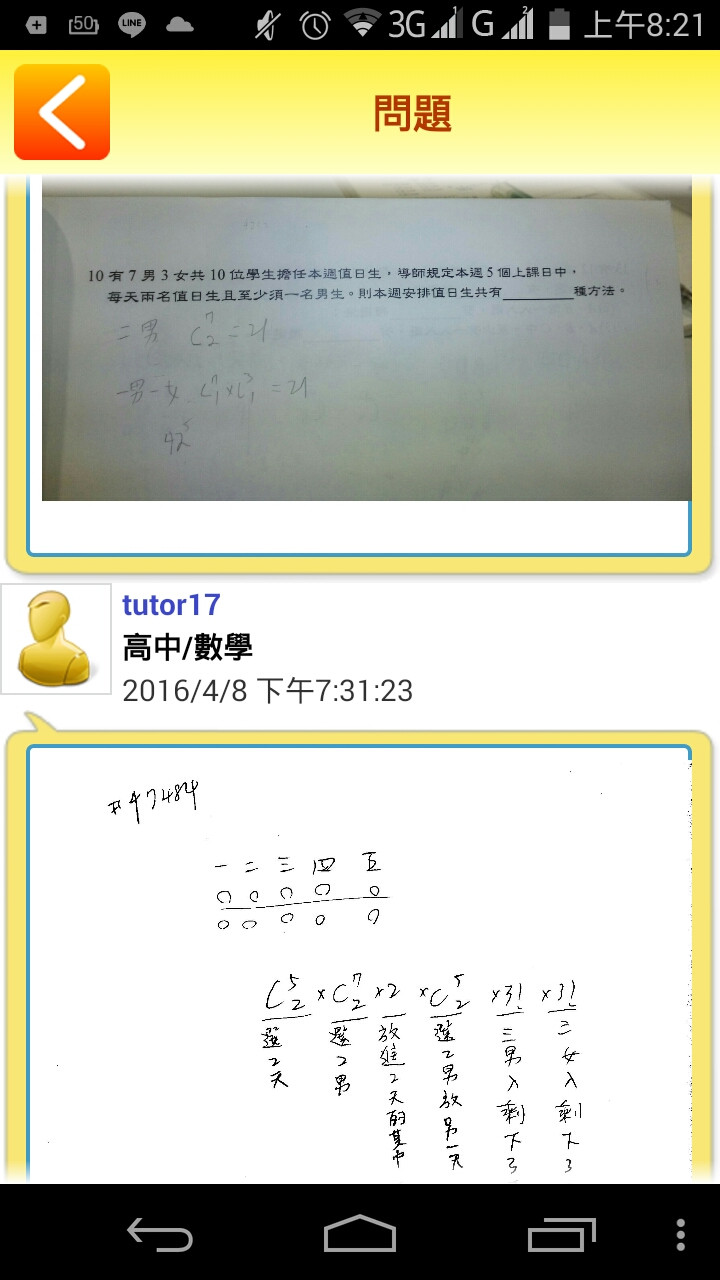 50 LINE 3G 1 G 2 上午8:21
問題
10 有 7 男 3 女共 10 位學生擔任本週值日生，導師規定本週 5 個上課日中，
每天兩名值日生且至少須一名男生。則本週安排值日生共有________種方法。
二男 C⁷₂ = 21
一男一女 C⁷₁×C³₁ = 21
42⁵
tutor17
高中/數學
2016/4/8 下午7:31:23
#47484
一 二 三 四 五
○ ○ ○ ○ ○
○ ○ ○ ○ ○
C⁵₂ × C⁷₂ ×2 ×C⁵₂ ×3! ×3!
選2天
選2男
放進2天的其中
選2男放另一天
三男入剩下3
三女入剩下3